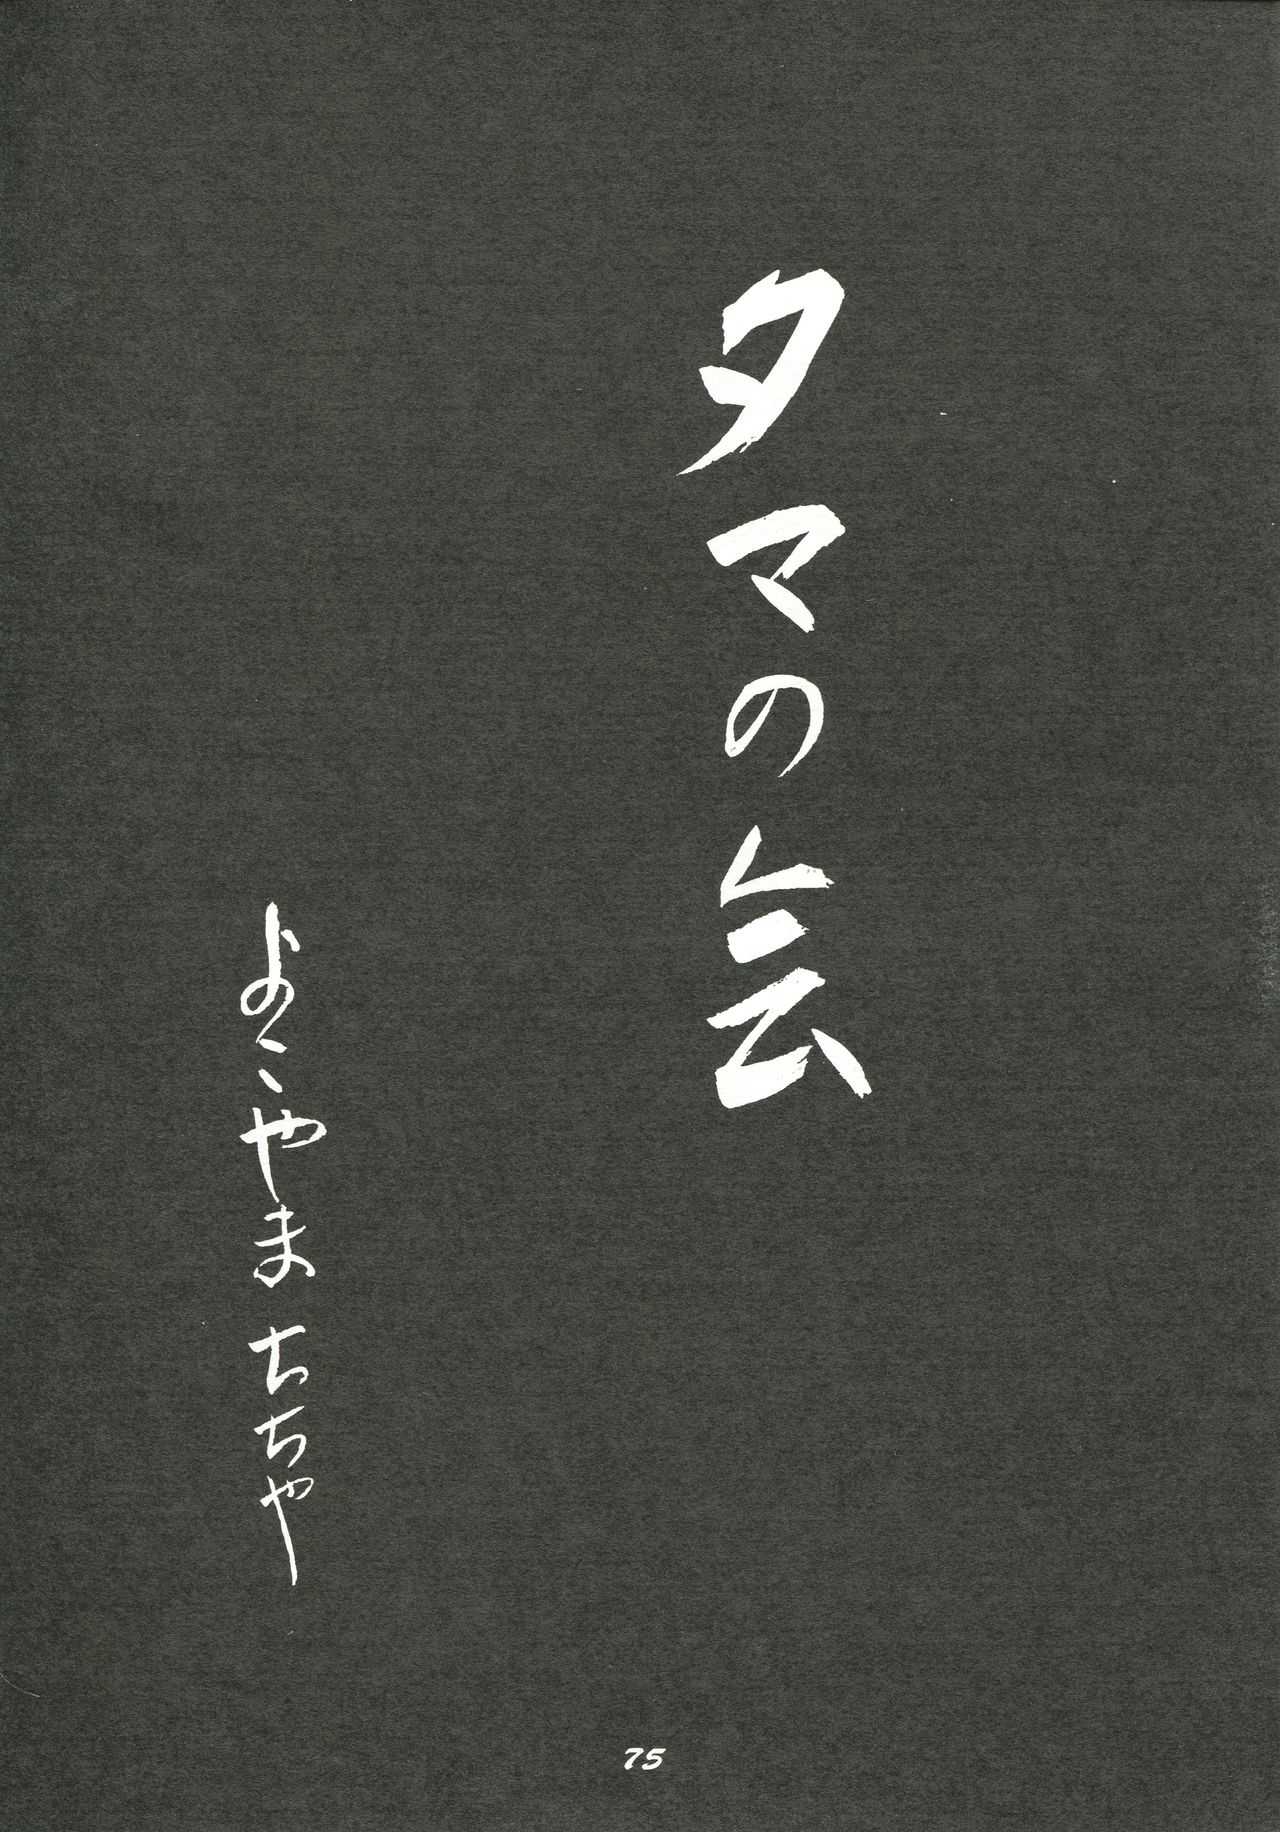 タマの会
よこやま ちちゃー
75